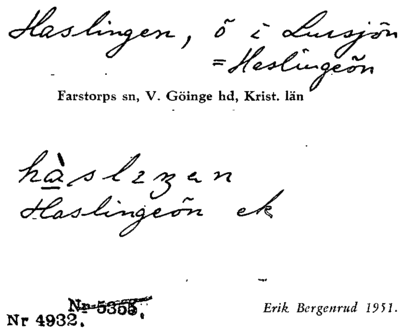 Haslingen, ö i Lursjön
= Haslingeön
Farstorps sn, V. Göinge hd, Krist. län
hàslɪŋən
Haslingeön ek
Nr 5355.
Nr 4932.
Erik Bergenrud 1951.